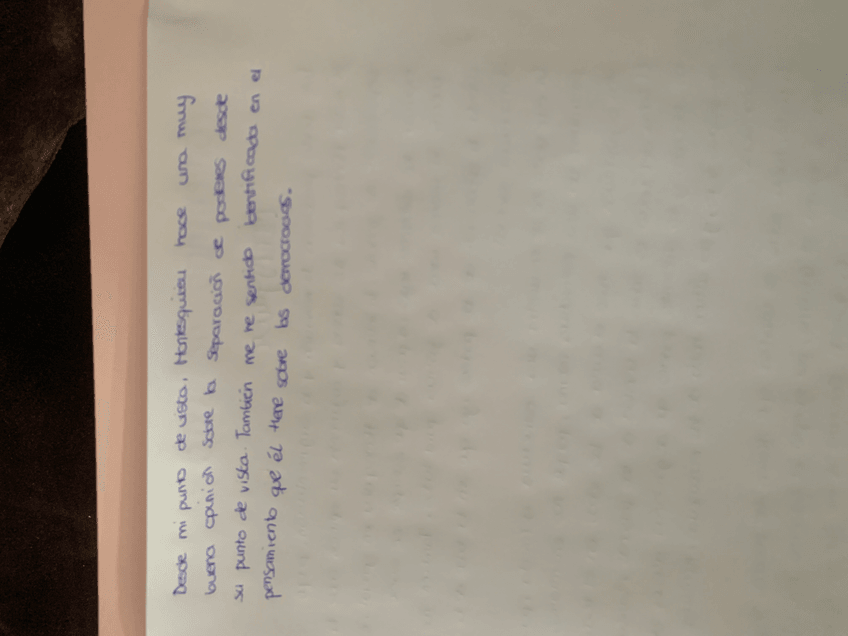 Desde mi punto de vista, Montesquieu hace una muy
buena opinión sobre la separación de poderes desde
su punto de vista. También me he sentido identificada en el
pensamiento que él tiene sobre las democracias.